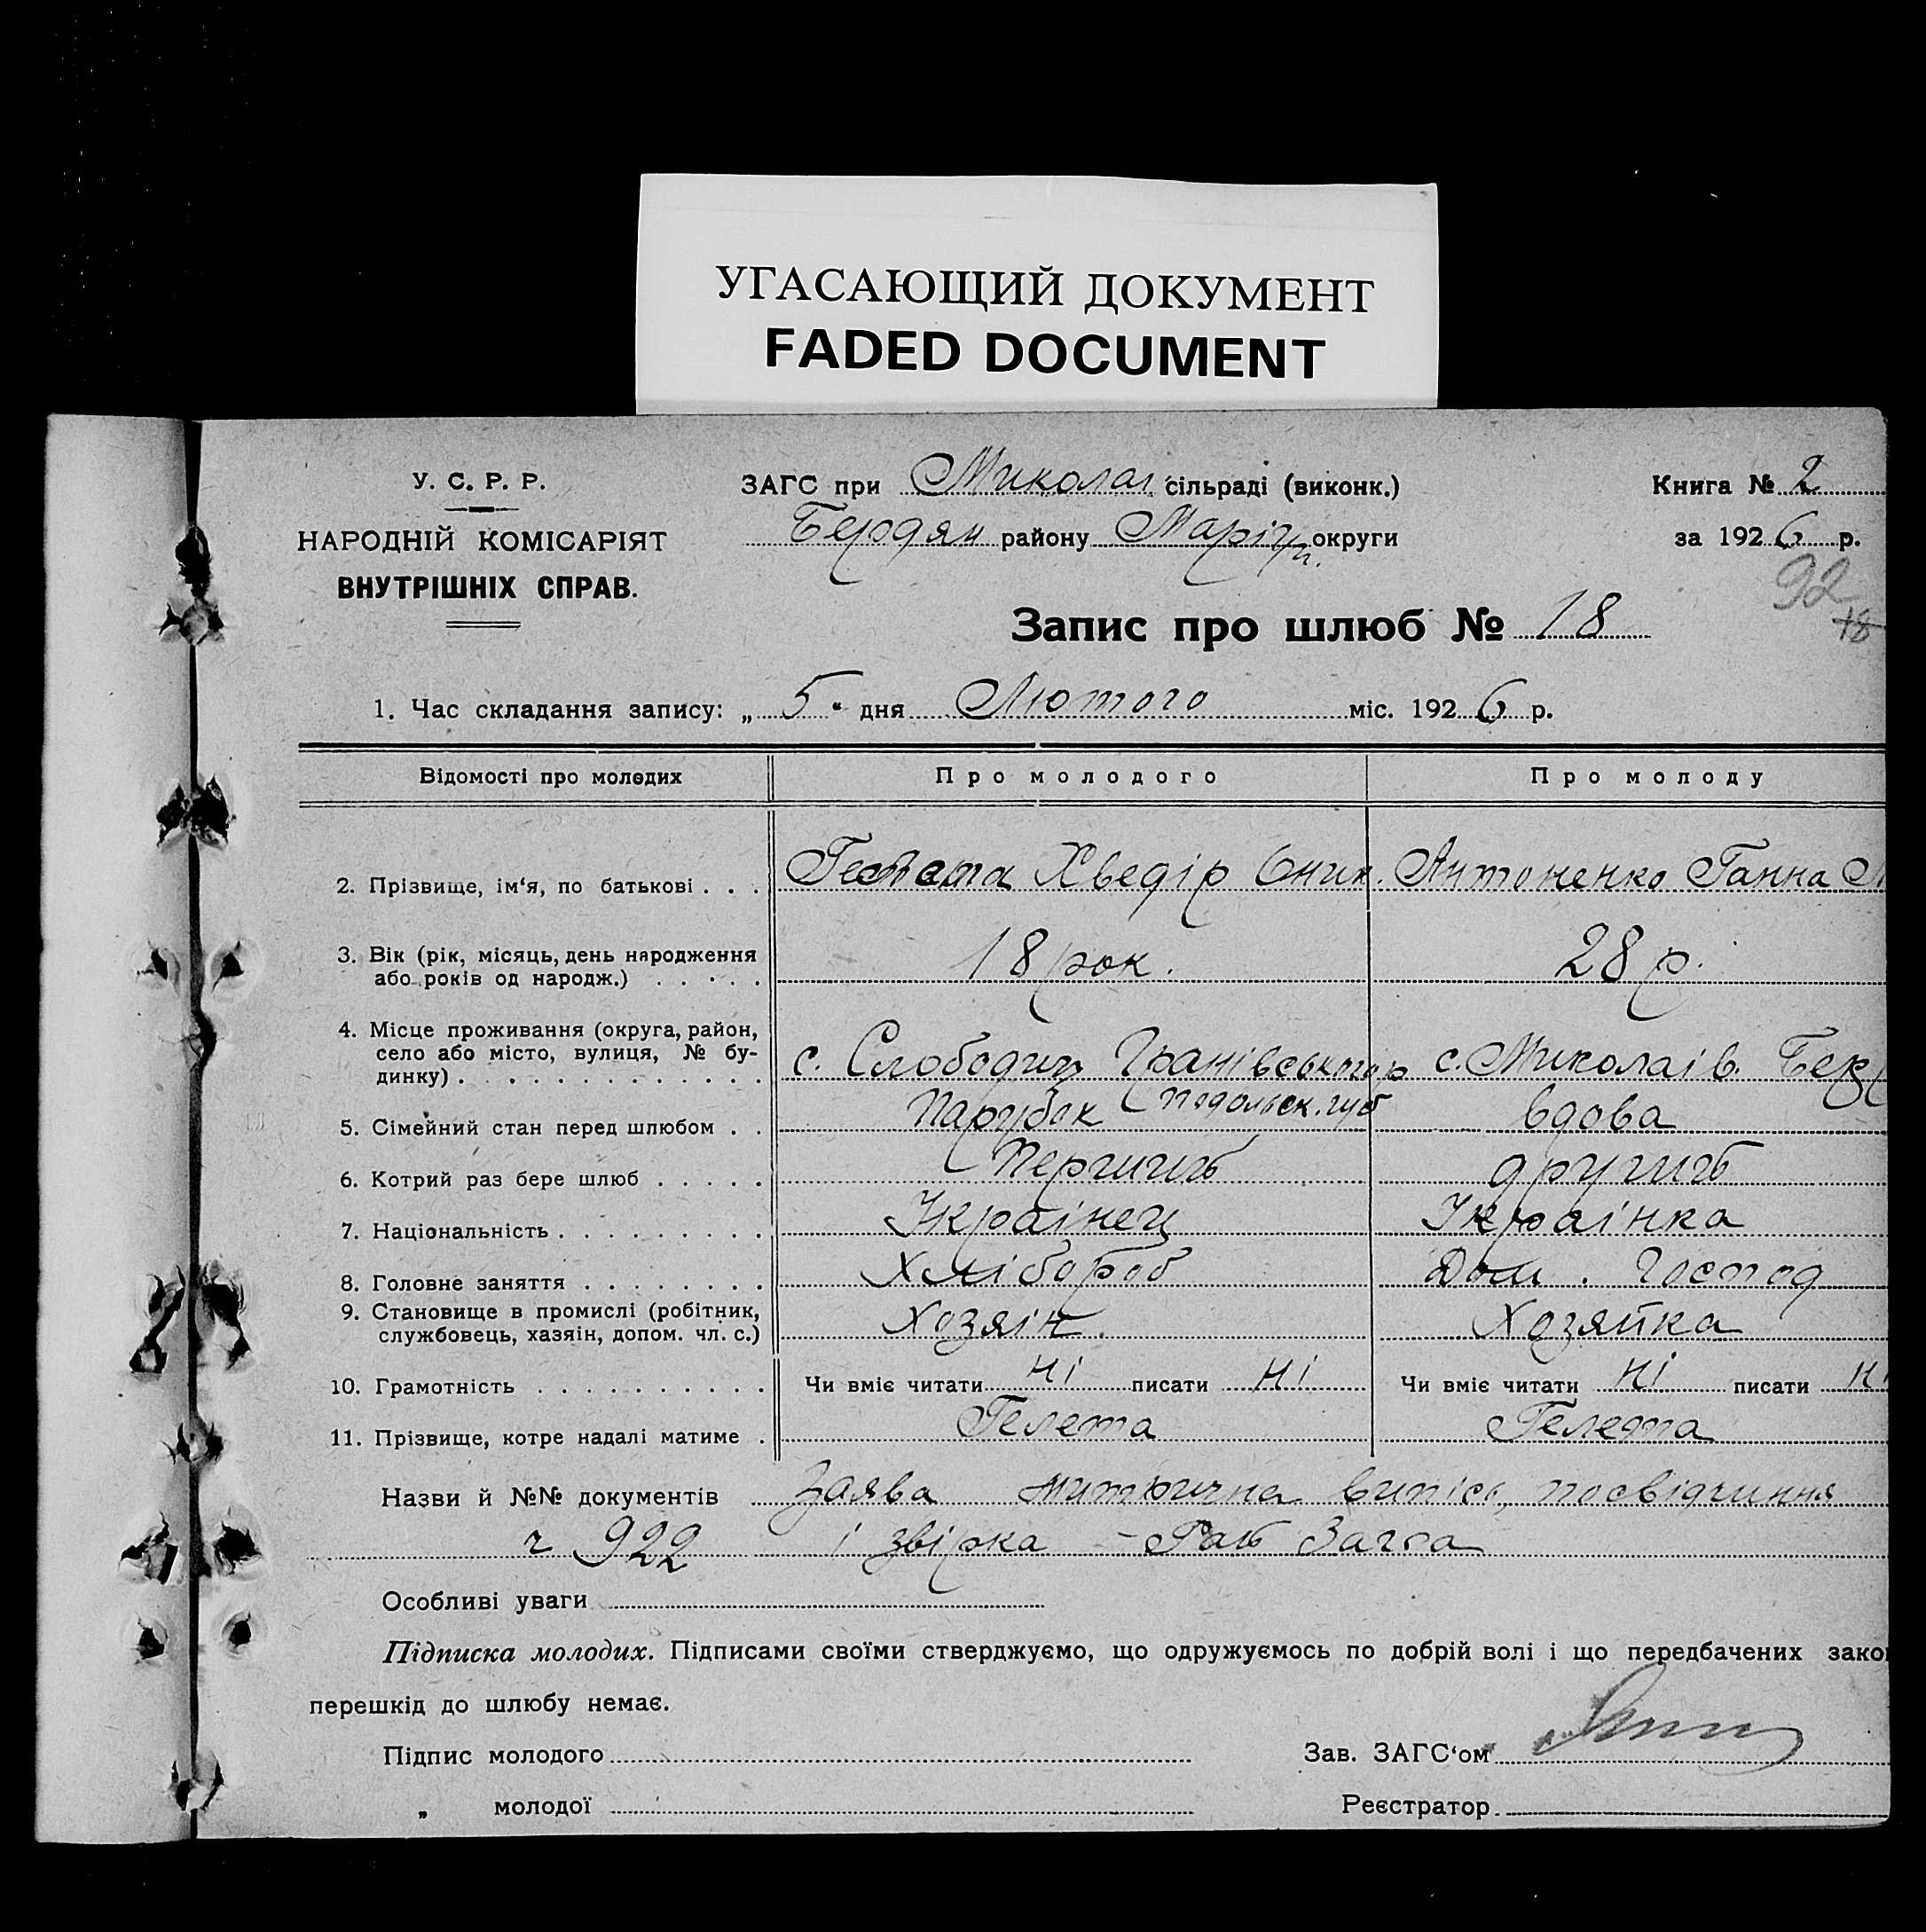 УГАСАЮЩИЙ ДОКУМЕНТ
FADED DOCUMENT
У. С. Р. Р.
НАРОДНІЙ КОМІСАРІЯТ
ВНУТРІШНІХ СПРАВ.
ЗАГС при Миколаї. сільраді (виконк.)
Бердян району Маріуп. округи
Книга № 2
за 1926 р.
92
18
Запис про шлюб № 18
1. Час складання запису: „ 5 “ дня Лютого міс. 1926 р.
Відомості про молодих Про молодого Про молоду
2. Прізвище, ім‘я, по батькові . . . Хведір Оник. Антоненко Ганна
3. Вік (рік, місяць, день народження
або років од народж.) . . . . . 18 рок. 28 р.
4. Місце проживання (округа, район,
село або місто, вулиця, № бу-
динку) . . . . . . . . . . . . с. Слободищ с. Миколаів. Бер
Подольск. губ
5. Сімейний стан перед шлюбом . . Парубок вдова
6. Котрий раз бере шлюб . . . . . Першиб другиб
7. Національність . . . . . . . . . Украінец Украінка
8. Головне заняття . . . . . . . Хлібороб Дом. Господ
9. Становище в промислі (робітник,
службовець, хазяін, допом. чл. с.) Хозяін. Хозяйка
10. Грамотність . . . . . . . . . . Чи вміє читати ні писати ні Чи вміє читати ні писати ні
11. Прізвище, котре надалі матиме . Гелета Гелета
Назви й №№ документів Заява митрична випісь, посвідчиння
ч 922 і звірка - Загса
Особливі уваги
Підписка молодих. Підписами своїми стверджуємо, що одружуємось по добрій волі і що передбачених зако
перешкід до шлюбу немає.
Підпис молодого Зав. ЗАГС‘ом
„ молодої Реєстратор